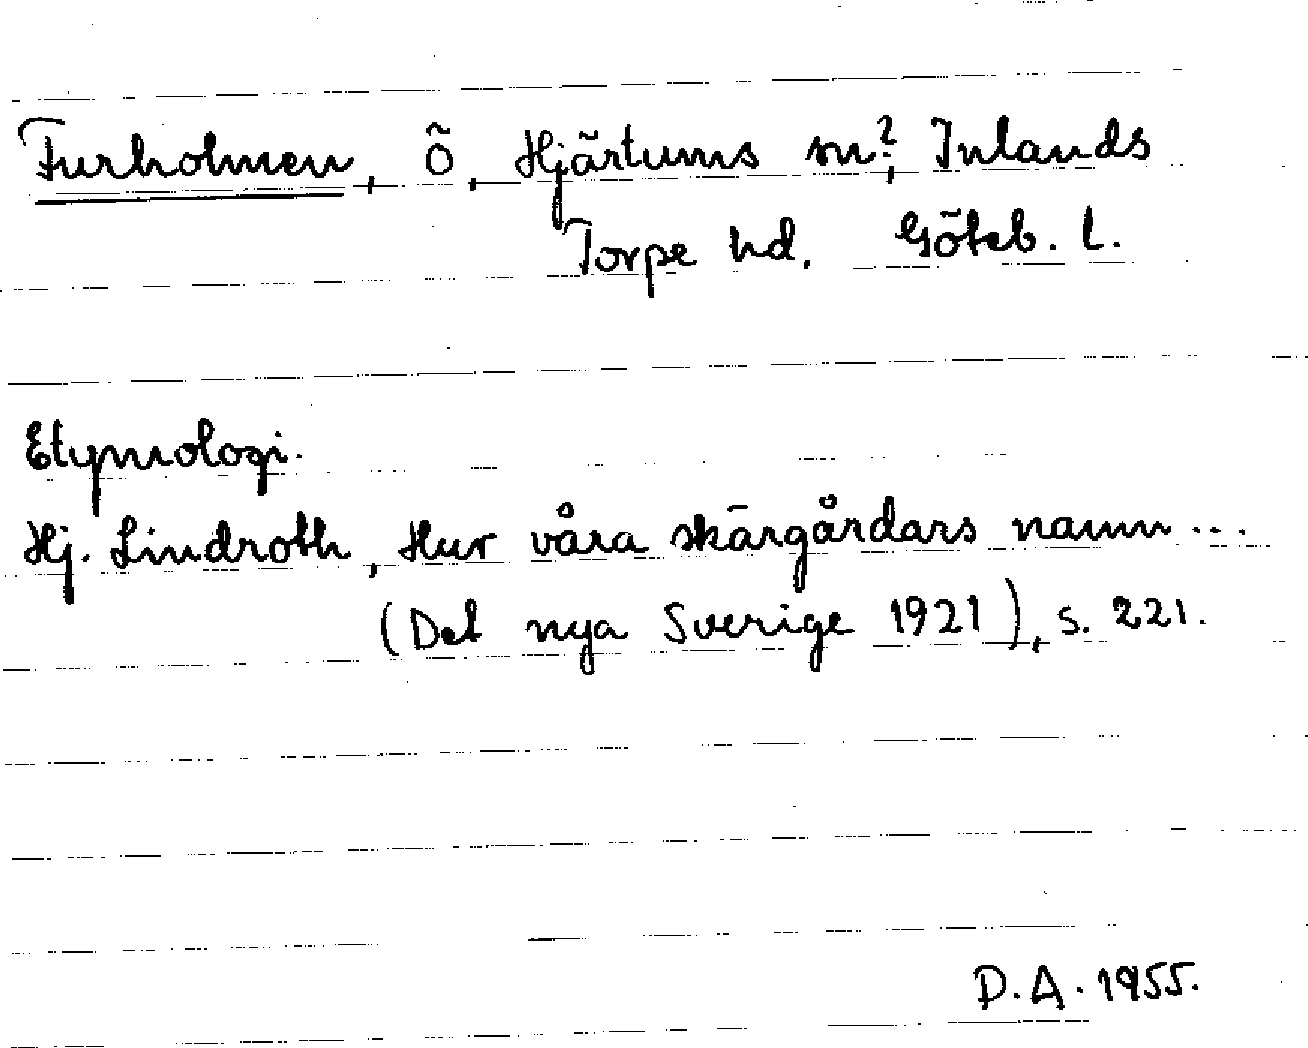 Furholmen, ö, Hjärtums sn?, Inlands
Torpe hd. Göteb. L.
Etymologi.
Hj. Lindroth, Hur våra skärgårdars namn ...
(Det nya Sverige 1921), s. 221.
D.A. 1955.